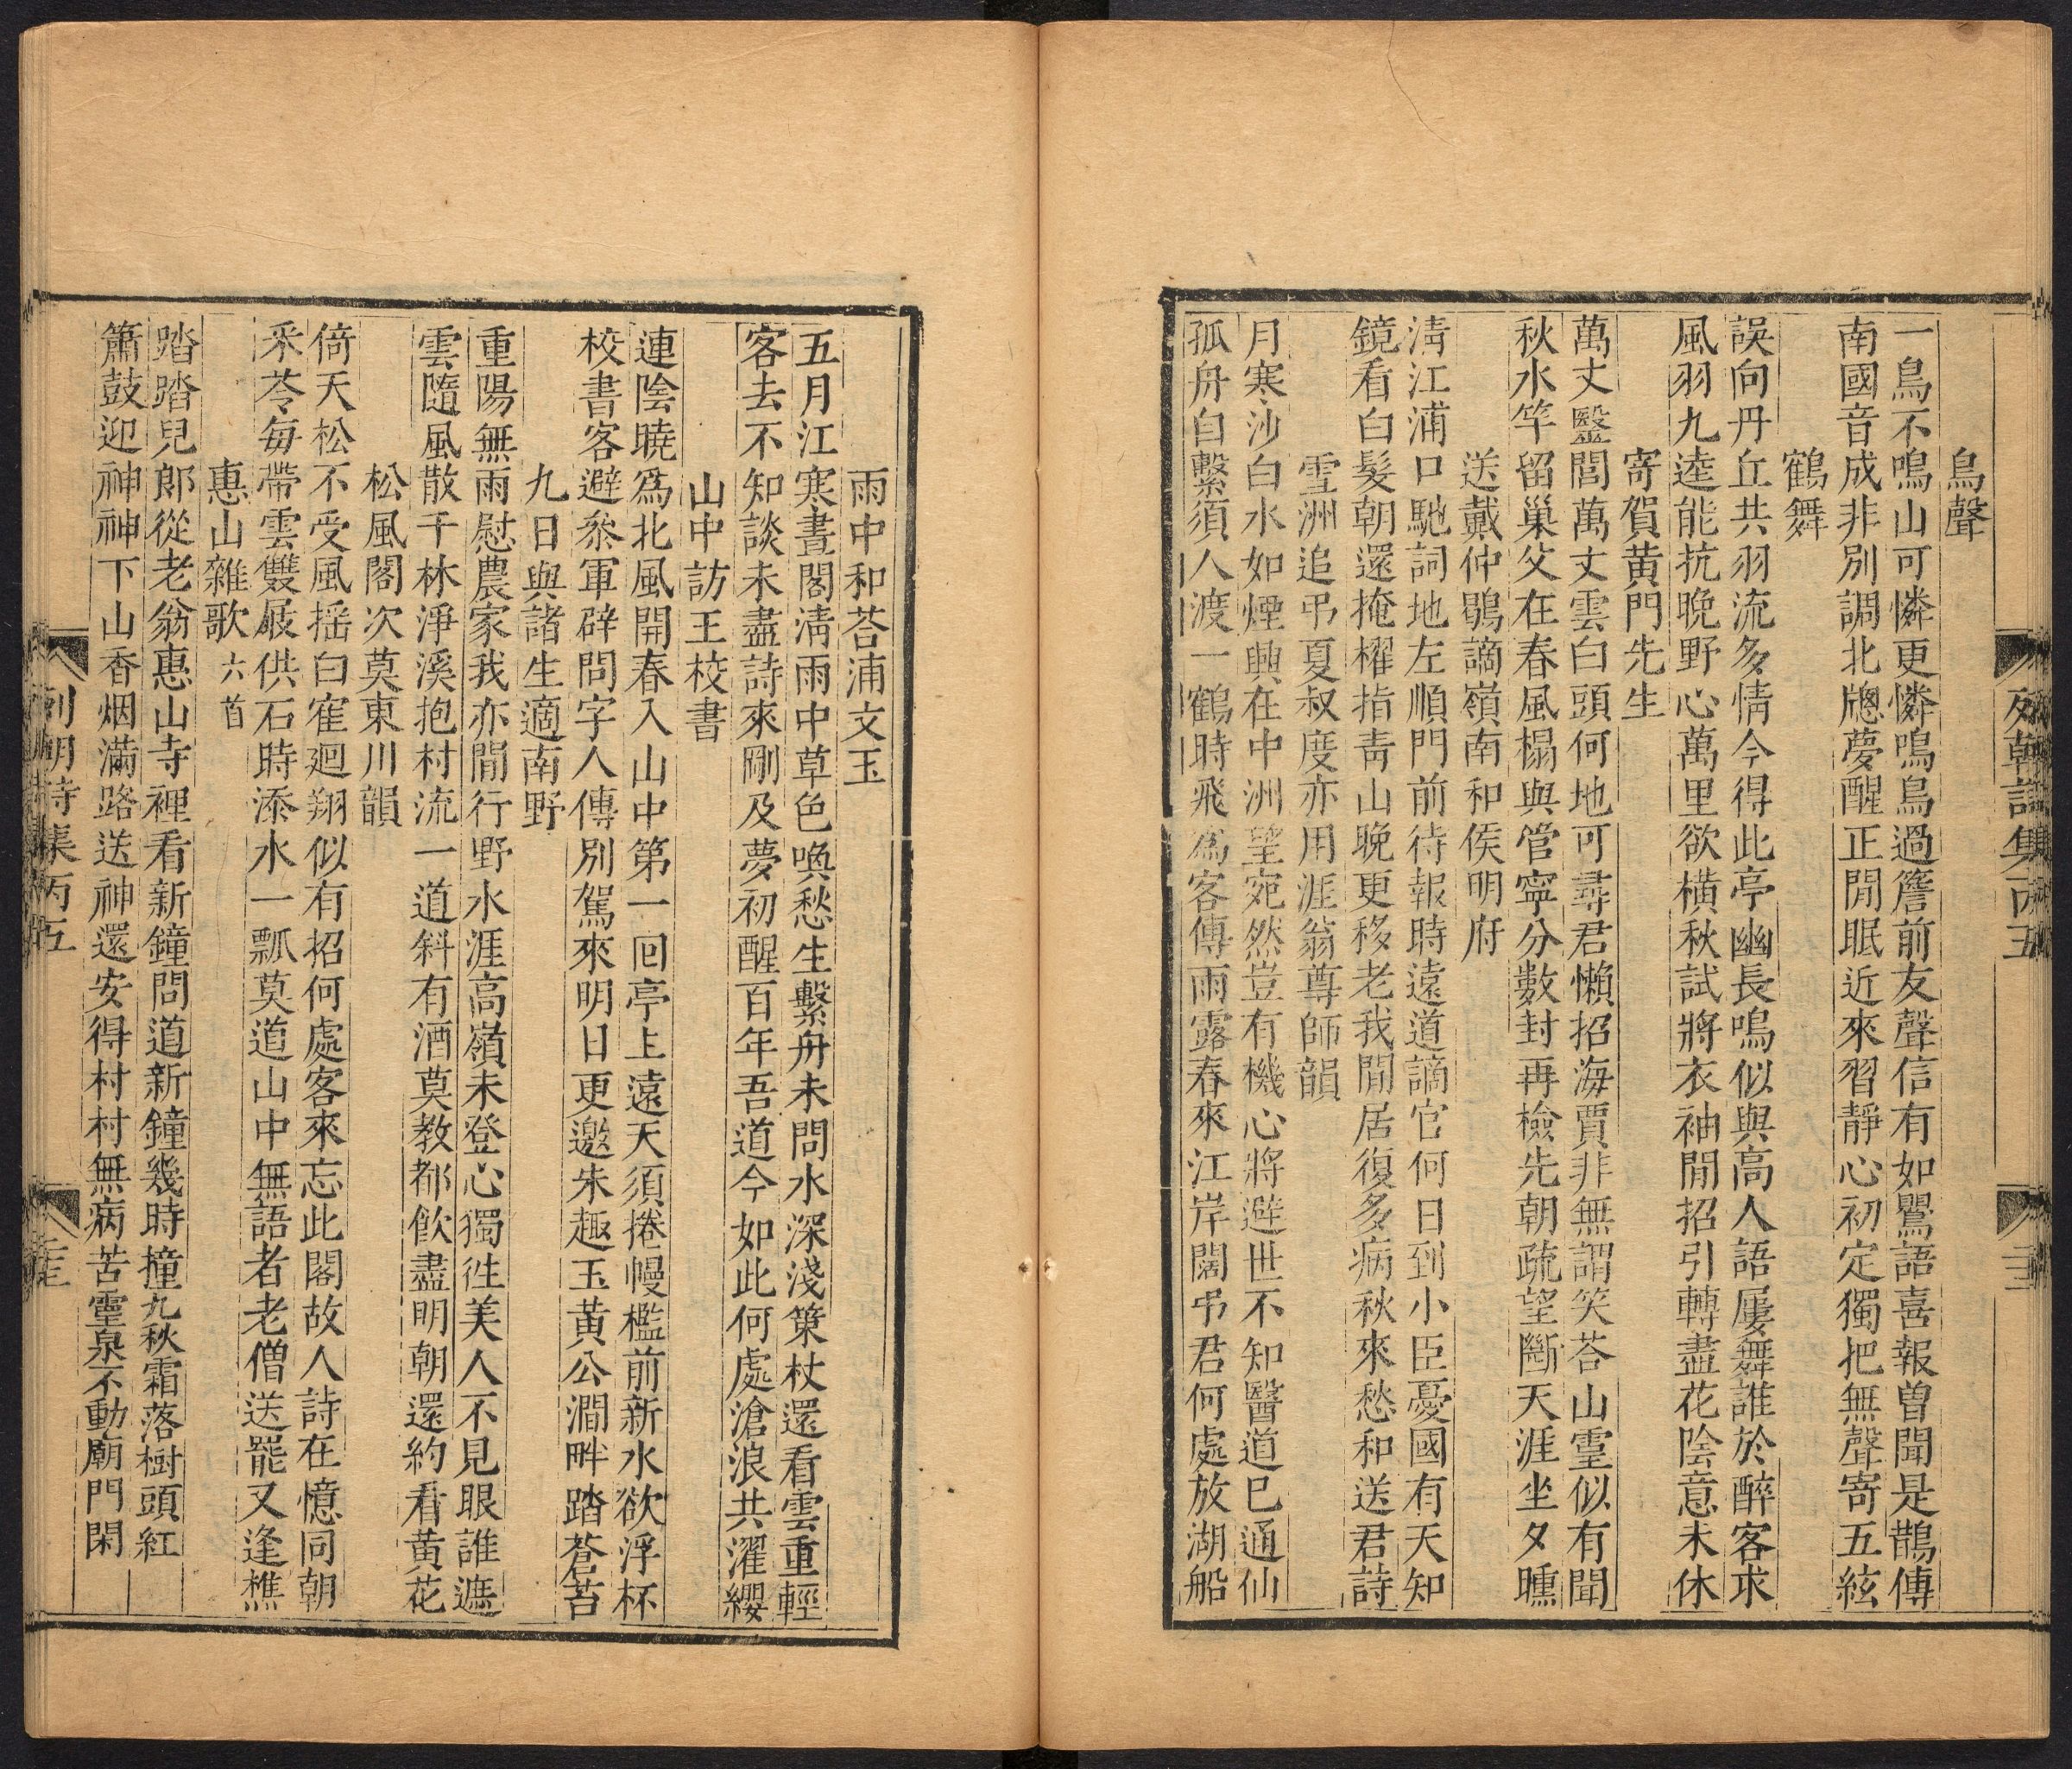 列朝詩集丙五
鳥聲
一鳥不鳴山可憐更憐鳴鳥過簷前友聲信有如鸎語喜報曾聞是鵲傳
南國音成非別調北牕夢醒正閒眠近來習靜心初定獨把無聲寄五絃
鶴舞
誤向丹丘共羽流多情今得此亭幽長鳴似與高人語屢舞誰於醉客求
風羽九逵能抗晚野心萬里欲橫秋試將衣袖閒招引轉盡花陰意未休
寄賀黄門先生
萬丈毉閭萬丈雲白頭何地可尋君懶招海賈非無謂笑荅山靈似有聞
秋水竿留巢父在春風榻與管寧分數封再檢先朝疏望斷天涯坐夕曛
送戴仲鶡謫嶺南和侯明府
淸江浦口馳詞地左順門前待報時遠道謫官何日到小臣憂國有天知
鏡看白髮朝還掩櫂指靑山晚更移老我閒居復多病秋來愁和送君詩
雪洲追弔夏叔度亦用涯翁尊師韻
月寒沙白水如煙興在中洲望宛然豈有機心將避世不知醫道已通仙
孤舟自繫須人渡一鶴時飛爲客傳雨露春來江岸闊弔君何處放湖船
雨中和荅浦文玉
五月江寒晝閣淸雨中草色喚愁生繫舟未問水深淺策杖還看雲重輕
客去不知談未盡詩來剛及夢初醒百年吾道今如此何處滄浪共濯纓
山中訪王校書
連陰曉爲北風開春入山中第一回亭上遠天須捲幔檻前新水欲浮杯
校書客避叅軍辟問字人傳別駕來明日更邀朱趣玉黄公澗畔踏蒼苔
九日與諸生適南野
重陽無雨慰農家我亦閒行野水涯高嶺未登心獨徃美人不見眼誰遮
雲隨風散千林淨溪抱村流一道斜有酒莫教都飮盡明朝還約看黄花
松風閣次莫東川韻
倚天松不受風揺白寉迴翔似有招何處客來忘此閣故人詩在憶同朝
釆苓每帶雲雙屐供石時添水一瓢莫道山中無語者老僧送罷又逢樵
惠山雜歌六首
踏踏兒郎從老翁惠山寺裡看新鐘問道新鐘幾時撞九秋霜落樹頭紅
簫鼓迎神神下山香烟滿路送神還安得村村無病苦靈泉不動廟門閑
列朝詩集丙五